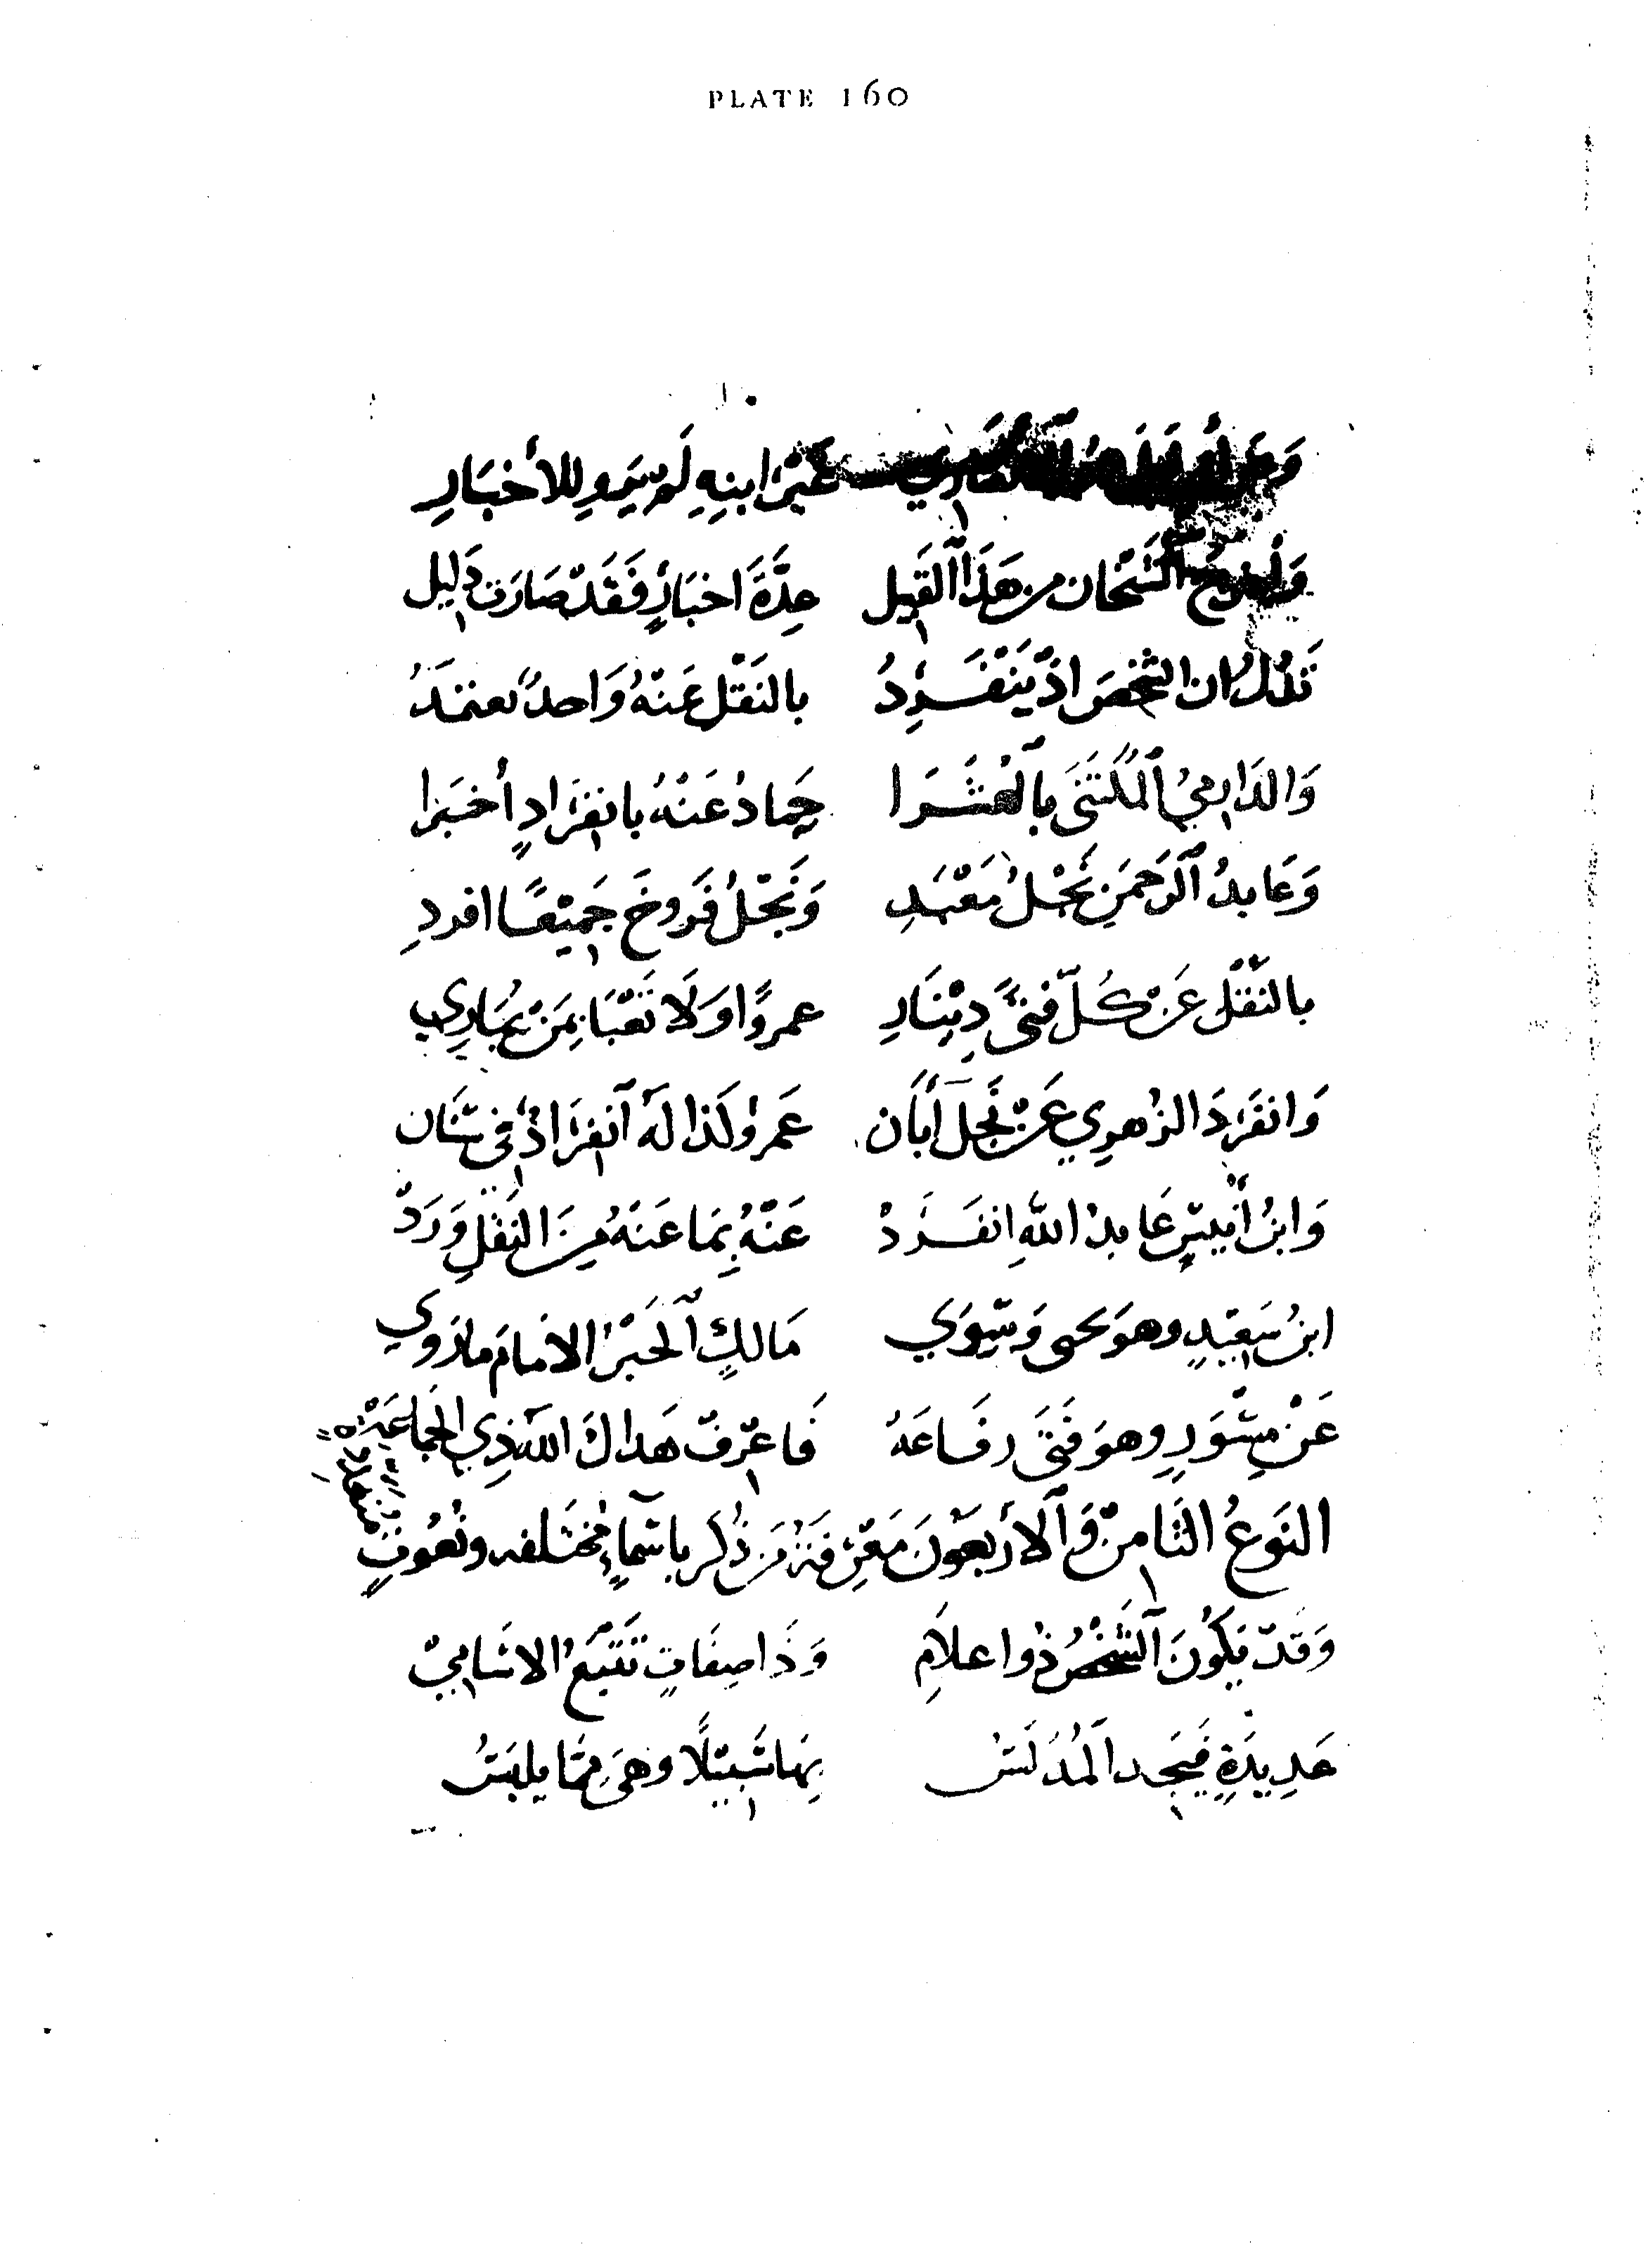 PLATE 160
غَيْرُ ابنِهِ لَمْ يَروِ للأخبَارِ
الشيخان من هَذَا القَبِيل عِدَّةَ اخبَارٍ فَقَدْ صَارَت دَليل
تَدُلُ ان الشخصَ اذْ يَنْفَرِدُ بالنَقْل عَنْهُ وَاحدٌ يعتمَدُ
وَالدَارميُ المُكْتَنَى بالعُشَرَا حَمادُ عَنْهُ بانفِرَادٍ أخبَرا
وَعَابدُ الرَحمَنِ نَجْلُ مَعْبَدِ وَنَجْلُ فَروخَ جَمِيْعًا افردِ
بالنَقْل عَنْ كُلّ فتىً دِيْنَارِ عمروًا وَلَا تَعْبَا بِمَنْ يُمَارِي
وَانفَرَدَ الزُهرِي عَنْ نَجل أَبَان عَمروُ كَذا لَهُ انفِرَادٌ في سِنَان
وَابنُ أنيسٍ عَابدُ اللهِ انفَرَدْ عَنْهُ بِمَا عَنهُ مِنَ النَقلِ وَرَدْ
ابنُ سَعِيْدٍ وهوَ يحيى وَسِوَى مَالكٍ الحَبْرُ الامَامَ مَا رَوى
عَنْ مِسْوَرٍ وهوَ فَتَى رفَاعَهْ فَاعْرِفْ هَداكَ اللهُ ذِي الجَماعَهْ
النَوعُ الثَامنْ وَالأربَعوْنَ مَعْرِفَةُ مَن ذُكر باسْمَاءٍ مُختَلفه ونُعُوتٍ متعدده
وَقَدْ يَكُونَ الشَخْصُ ذُوا علَامِ وَذَا صِفَاتٍ تَتْبَعُ الاسَامِيْ
عَدِيدَةٍ فَيَجد المُدَلسُ بِهَا سَبِيْلًا وهيَ مِمَّا يلبَسُ